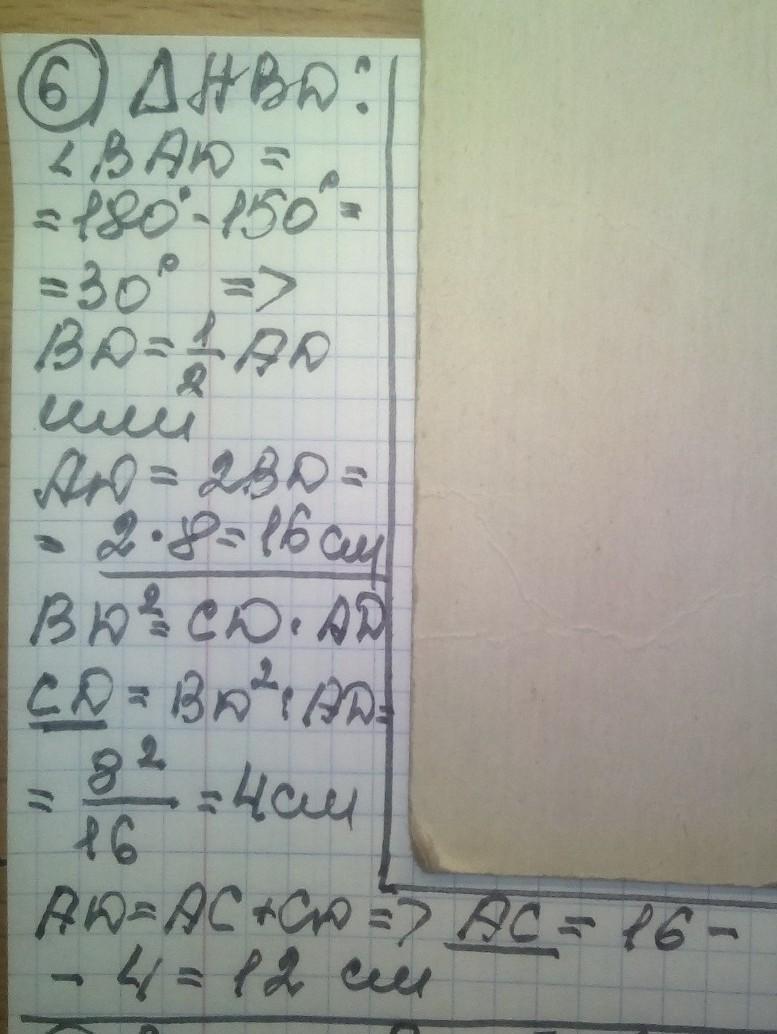 6 ΔABD:
∠BAD =
= 180° - 150° =
= 30° =>
BD = 1/2 AD
или
AD = 2BD =
= 2 · 8 = 16 см
BD² = CD · AD
CD = BD² : AD =
= 8²/16 = 4 см
AD = AC + CD => AC = 16 -
- 4 = 12 см